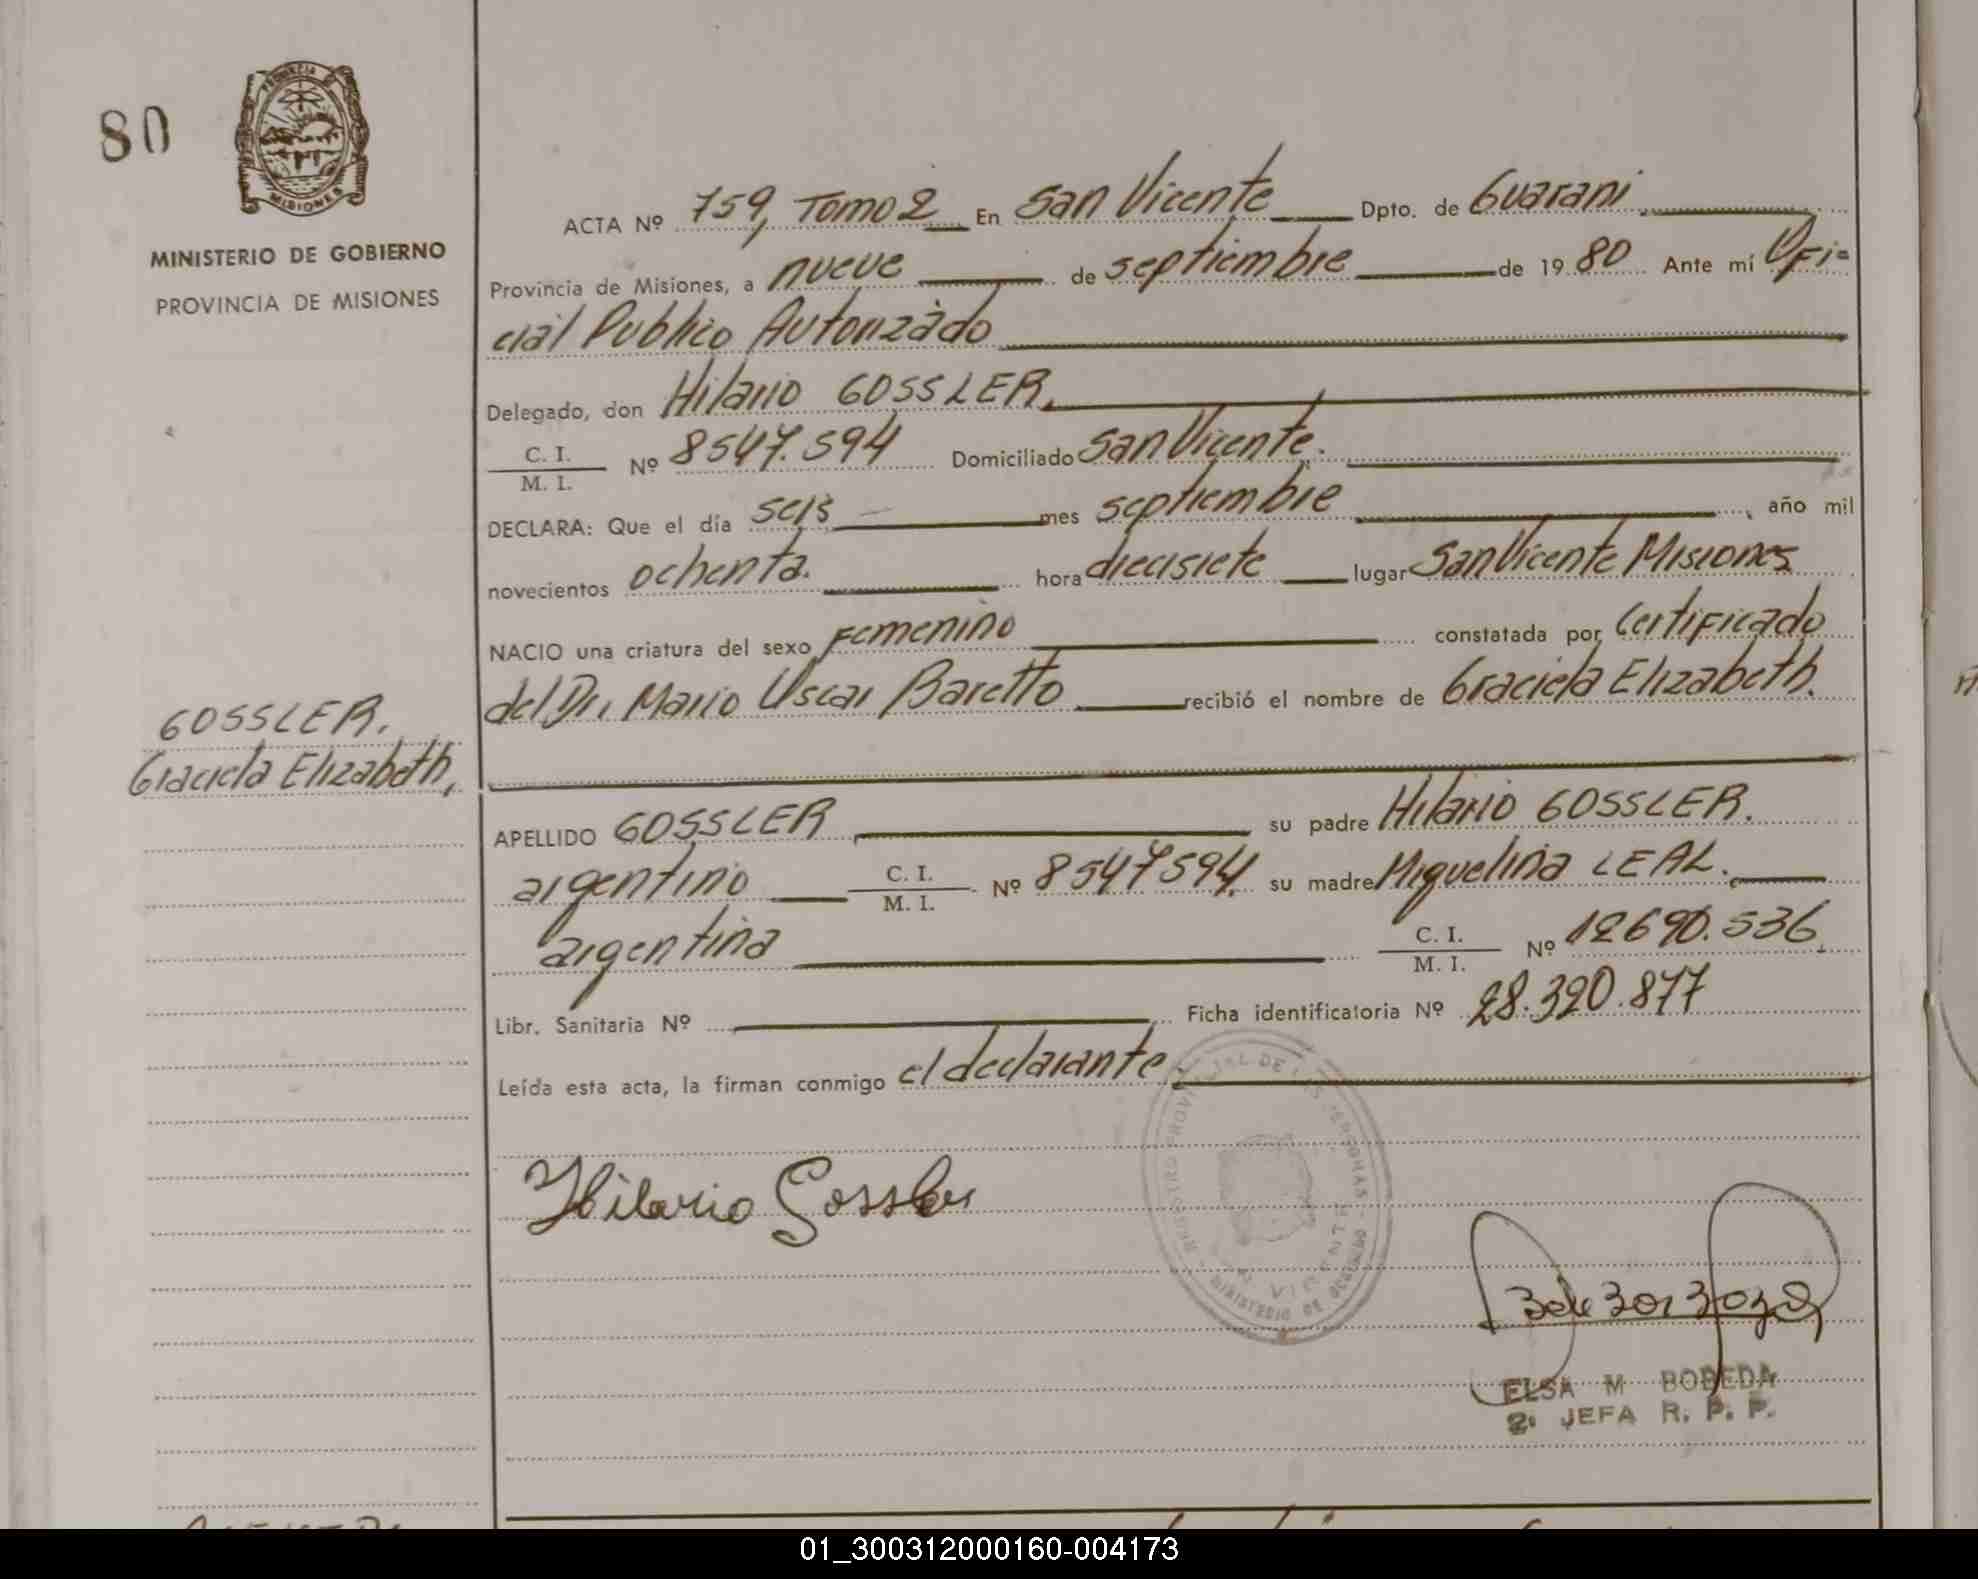 80
PROVINCIA DE
MISIONES
MINISTERIO DE GOBIERNO
PROVINCIA DE MISIONES
ACTA Nº 759, Tomo 2 En San Vicente Dpto. de Guarani
Provincia de Misiones, a nueve de septiembre de 19 80 Ante mí Ofi-
cial Publico Autorizado
Delegado, don Hilario GOSSLER,
C. I.
M. I. Nº 8547.594 Domiciliado San Vicente.
DECLARA: Que el día seis mes septiembre, año mil
novecientos ochenta. hora diecisiete lugar San Vicente Misiones
NACIO una criatura del sexo Femenino constatada por Certificado
del Dr. Mario Oscar Baretto recibió el nombre de Graciela Elizabeth.
GOSSLER,
Graciela Elizabeth,
APELLIDO GOSSLER su padre Hilario GOSSLER.
argentino C. I.
M. I. Nº 8547594. su madre Miguelina LEAL.
argentina C. I.
M. I. Nº 12690.536
Libr. Sanitaria Nº Ficha identificatoria Nº 28.320.877
Leída esta acta, la firman conmigo el declarante
REGISTRO PROVINCIAL DE LAS PERSONAS
SAN VICENTE
MINISTERIO DE GOBIERNO
Hilario Gossler
ELSA M BOBEDA
2. JEFA R. P. P.
01_300312000160-004173